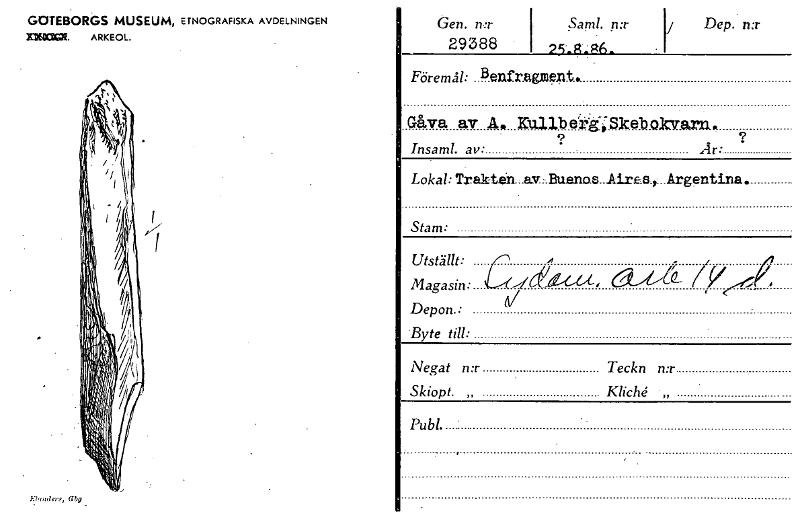 GÖTEBORGS MUSEUM, ETNOGRAFISKA AVDELNINGEN
ARKEOL.
1/1
Elanders, Gbg
Gen. n:r Saml. n:r / Dep. n:r
29388 25.8.86.
Föremål: Benfragment.
Gåva av A. Kullberg, Skebokvarn.
Insaml. av: ? År: ?
Lokal: Trakten av Buenos Aires, Argentina.
Stam:
Utställt:
Magasin: Sydam. ark 14 d.
Depon.:
Byte till:
Negat n:r Teckn n:r
Skiopt. „ Kliché „
Publ.